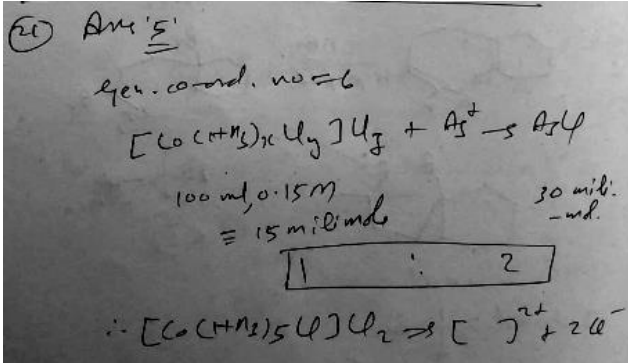 (21) Ans '5'
Gen. co-ord. no = 6
[Co(NH3)x Cly]Clz + Ag+ → AgCl
100 ml, 0.15M 30 mili.
≡ 15 milimole -mol.
1 : 2
∴ [Co(NH3)5Cl]Cl2 → [ ]2+ + 2Cl-